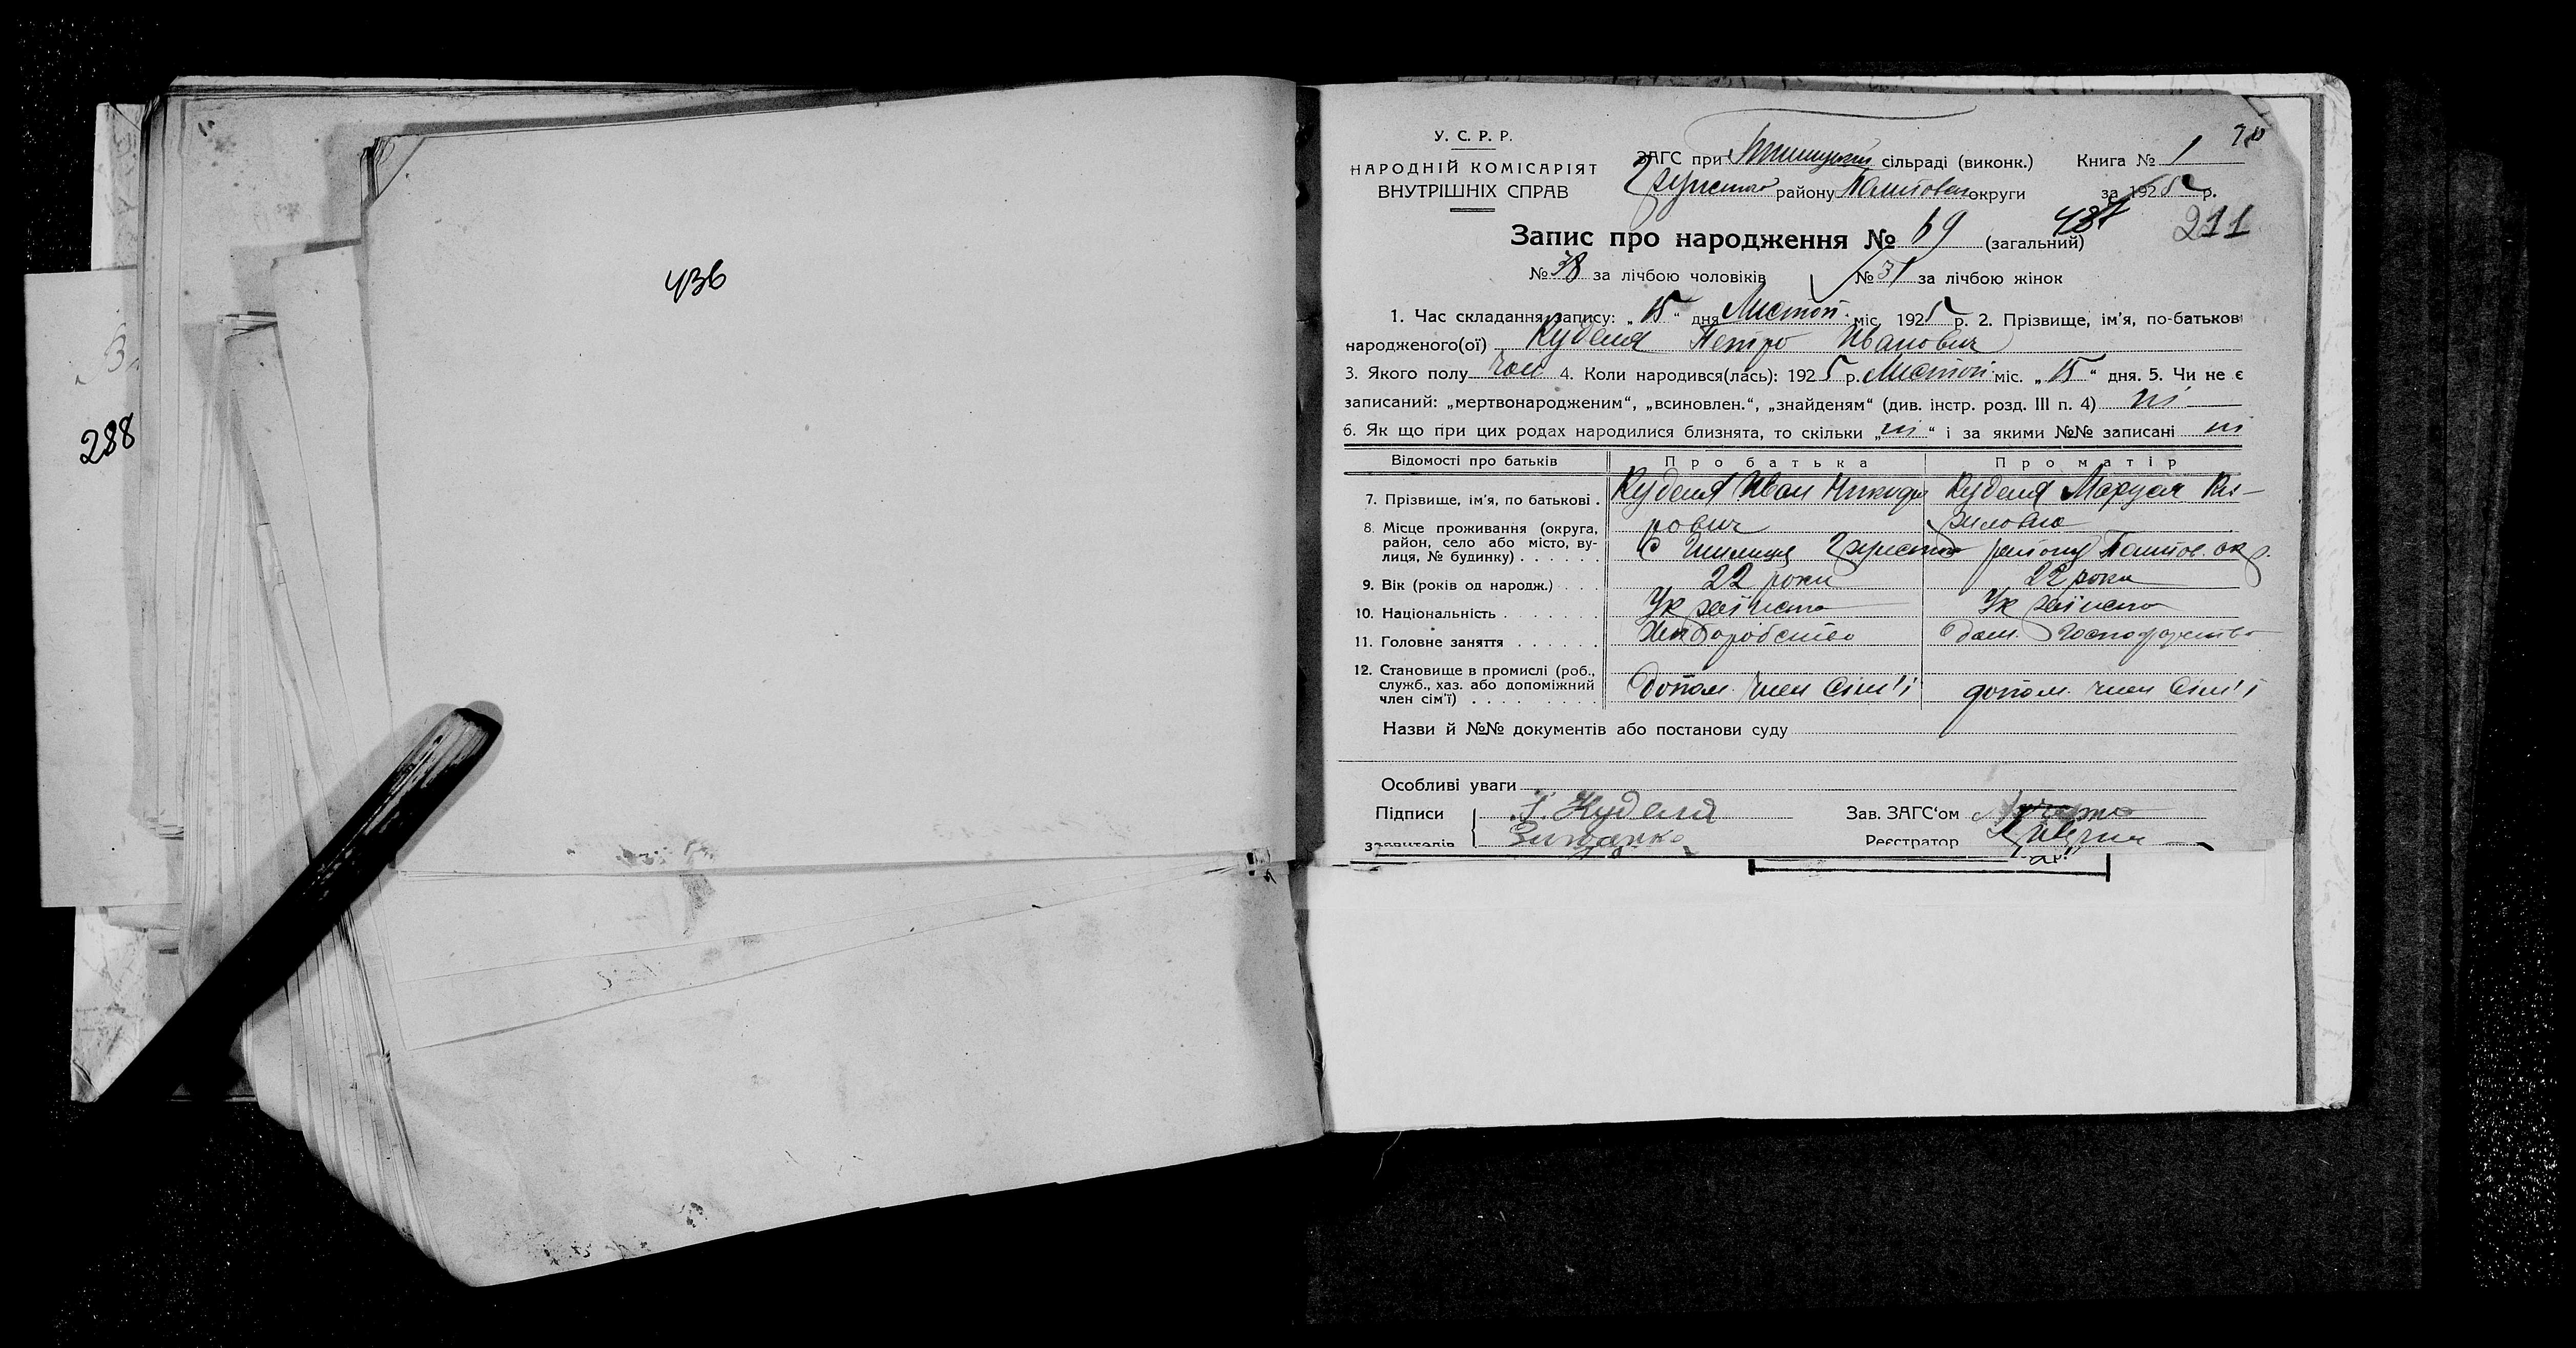 436
288
У. С. Р. Р.
НАРОДНІЙ КОМІСАРІЯТ
ВНУТРІШНІХ СПРАВ
ЗАГС при сільраді (виконк.) Книга № 1
району Полтовськ округи за 1925 р.
Запис про народження № 69 (загальний) 437 211
№ 38 за лічбою чоловіків № 31 за лічбою жінок
1. Час складання запису: „15“ дня Листоп. міс. 1925 р. 2. Прізвище, ім'я, по-батькові
народженого(ої) Куделя Петро Иванович
3. Якого полу чол 4. Коли народився(лась): 1925 р. Листоп. міс. „15“ дня. 5. Чи не є
записаний: „мертвонародженим“, „всиновлен.“, „знайденям“ (див. інстр. розд. III п. 4) ні
6. Як що при цих родах народилися близнята, то скільки „ні“ і за якими №№ записані ні
Відомості про батьків Про батька Про матір
7. Прізвище, ім'я, по батькові . Куделя Иван Никифо Куделя Маруся Ки-
8. Місце проживання (округа, рович риловна
район, село або місто, ву-
лиця, № будинку) . . . . . . с району Полтов. окр.
9. Вік (років од народж.) . . . 22 роки 22 роки
10. Національність . . . . . . . Українець Українка
11. Головне заняття . . . . . . Хліборобство дом. господарство
12. Становище в промислі (роб.,
служб., хаз. або допоміжний допом. член сім'ї допом. член сім'ї
член сім'ї) . . . . . . . .
Назви й №№ документів або постанови суду
Особливі уваги
Підписи І. Куделя Зав. ЗАГС'ом
заявителів Реєстратор